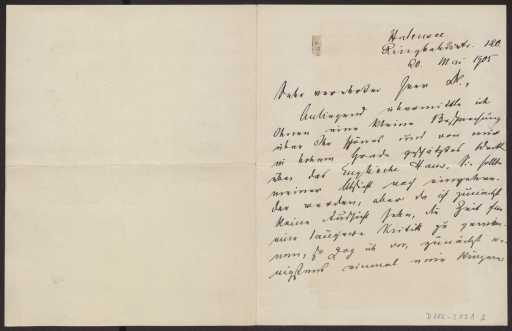 Halensee
Ringbahnstr. 120.
20. Mai 1905
Sehr verehrter Herr Dr.,
Anliegend übermittle ich
Ihnen eine kleine Besprechung
über Ihr schönes und von mir
in hohem Grade geschätztes Werk
über das Englische Haus. Sie sollte
meiner Absicht nach eingehen-
der werden, aber da ich zunächst
keine Aussicht sehe, die Zeit für
eine längere Kritik zu gewin-
nen, so zog ich vor, zunächst we-
nigstens einmal eine kürzere